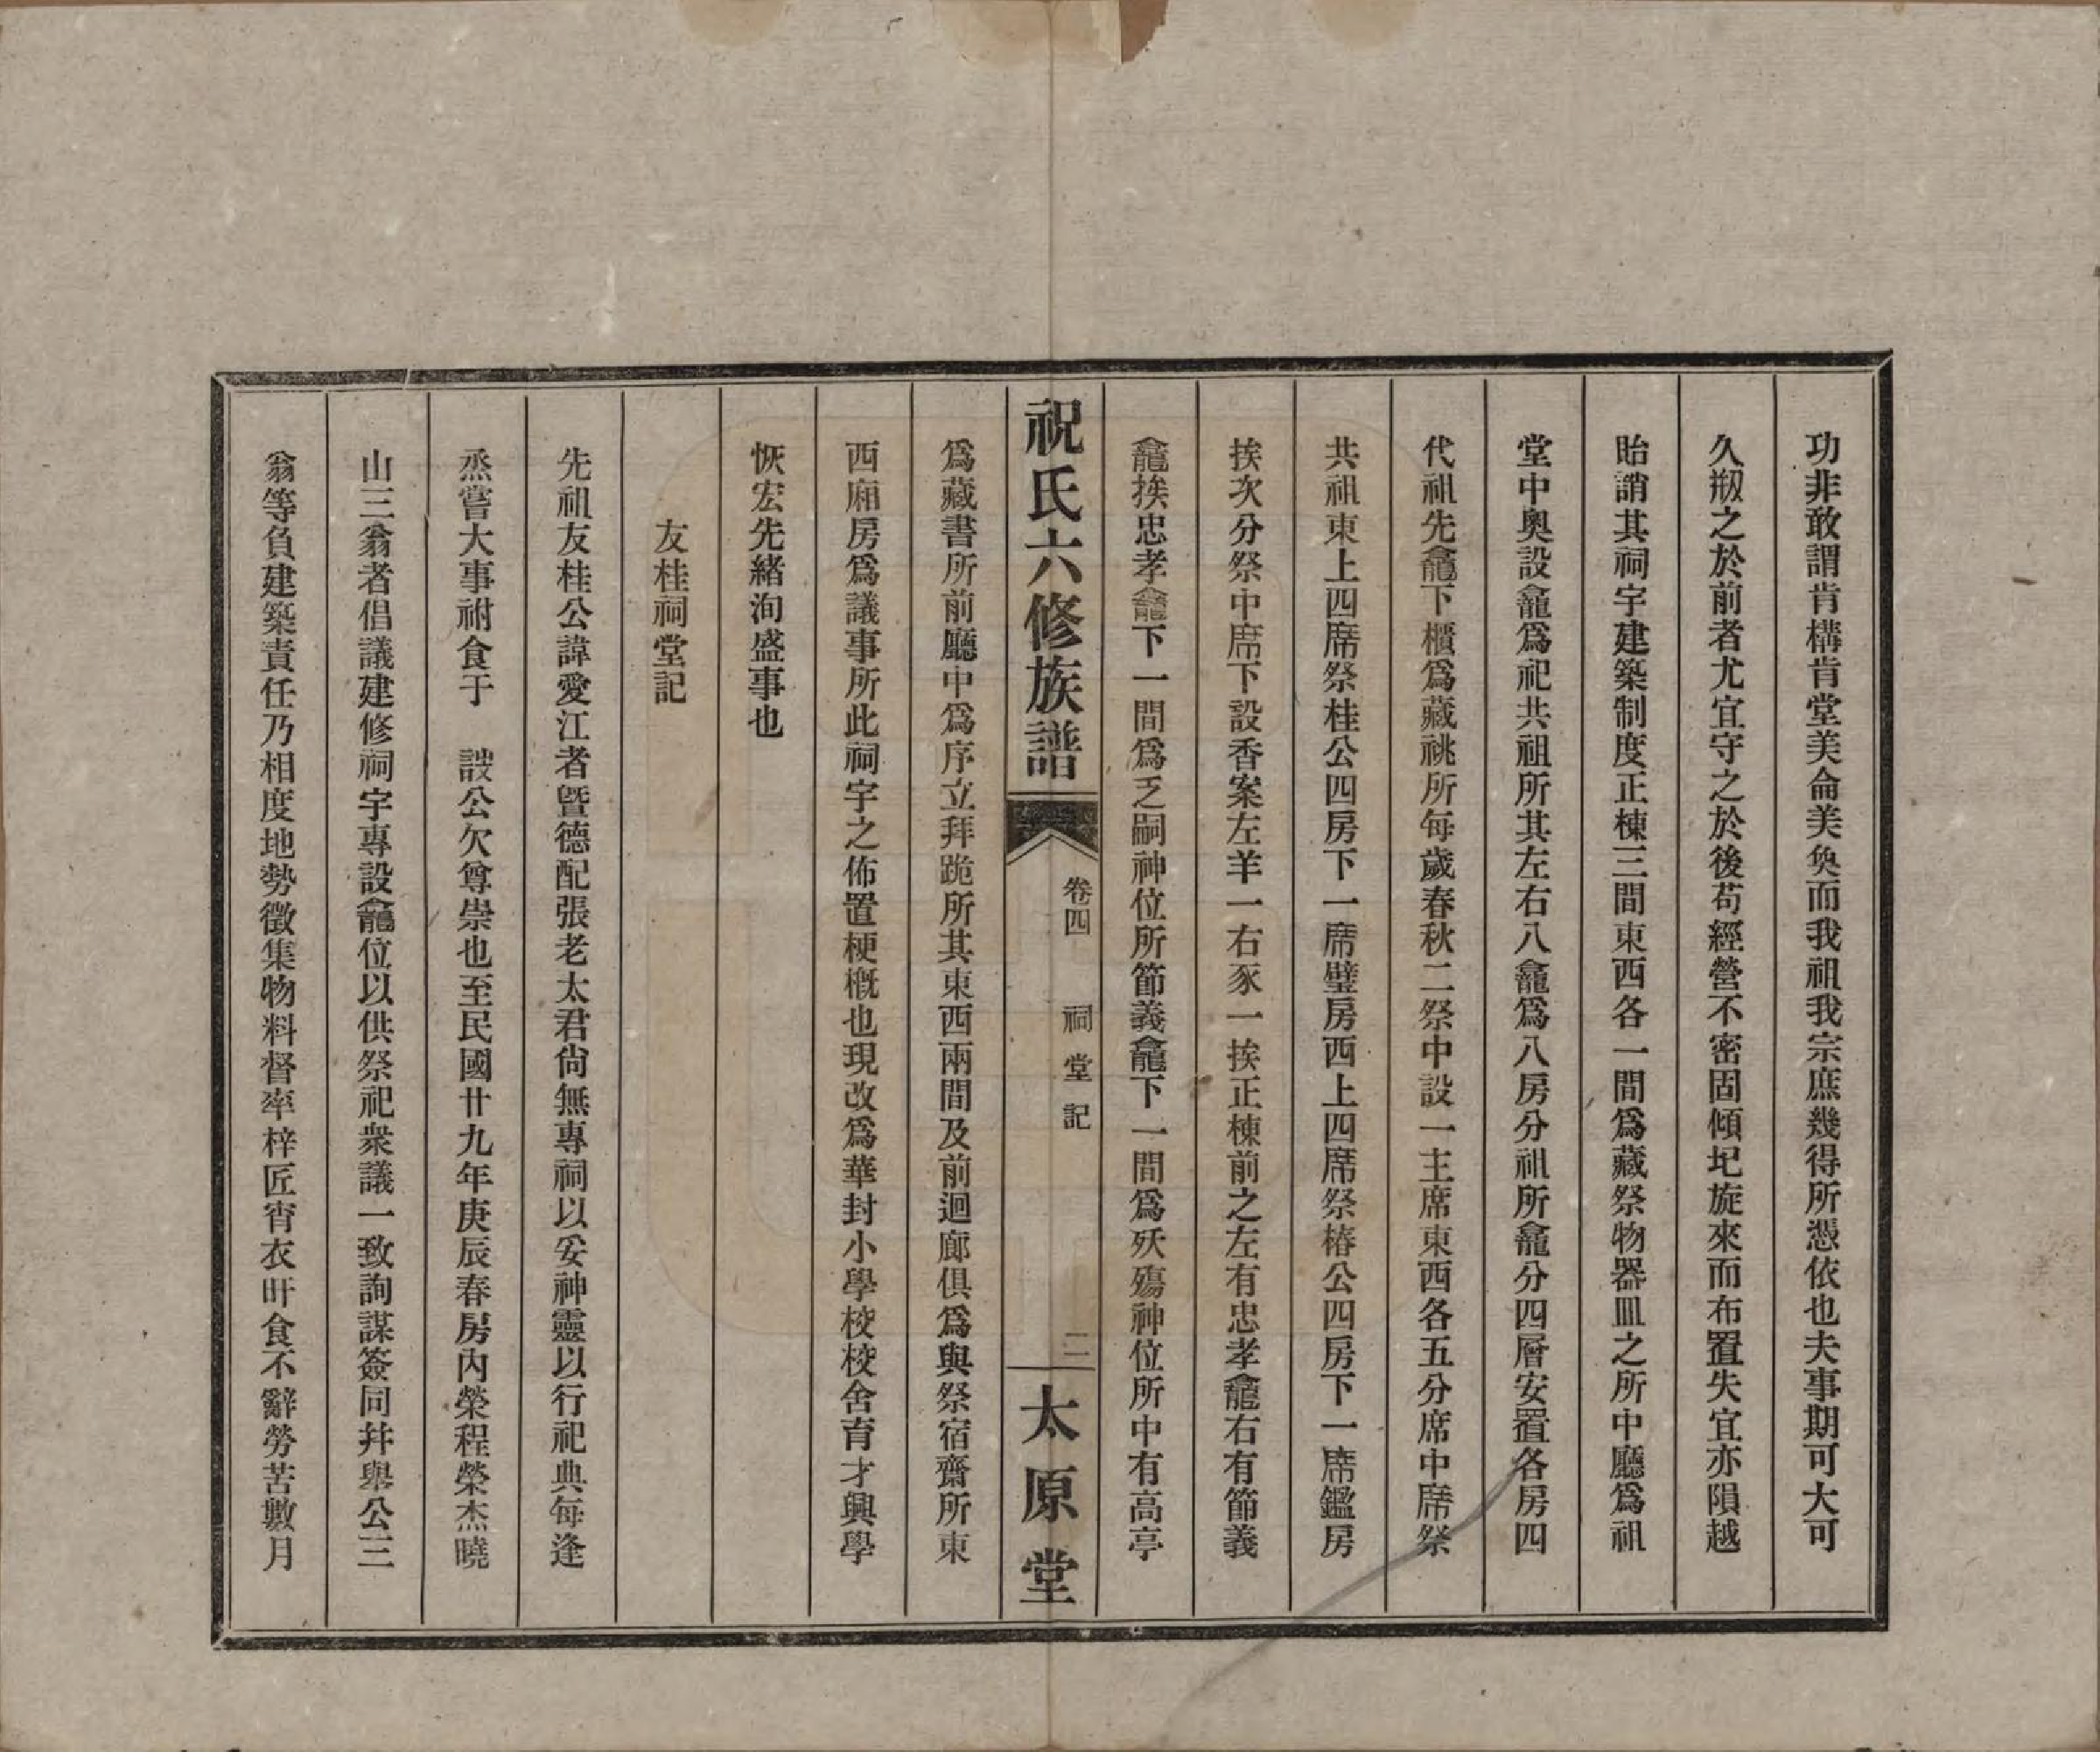 功非敢謂肯構肯堂美侖美奐而我祖我宗庶幾得所憑依也夫事期可大可
久剏之於前者尤宜守之於後苟經營不密固傾圯旋來而布置失宜亦隕越
貽誚其祠宇建築制度正棟三間東西各一間爲藏祭物器皿之所中廳爲祖
堂中奧設龕爲祀共祖所其左右八龕爲八房分祖所龕分四層安置各房四
代祖先龕下櫃爲藏祧所每歲春秋二祭中設一主席東西各五分席中席祭
共祖東上四席祭桂公四房下一席璧房西上四席祭椿公四房下一席鑑房
挨次分祭中席下設香案左羊一右豕一挨正棟前之左有忠孝龕右有節義
龕挨忠孝龕下一間爲乏嗣神位所節義龕下一間爲殀殤神位所中有高亭
祝氏六修族譜
卷四
祠堂記
二
太原堂
爲藏書所前廳中爲序立拜跪所其東西兩間及前迴廊俱爲與祭宿齋所東
西廂房爲議事所此祠宇之佈置梗概也現改爲華封小學校校舍育才興學
恢宏先緒洵盛事也
友桂祠堂記
先祖友桂公諱愛江者曁德配張老太君尙無專祠以妥神靈以行祀典每逢
烝嘗大事祔食于 諁公欠尊崇也至民國廿九年庚辰春房內榮程榮杰曉
山三翁者倡議建修祠宇專設龕位以供祭祀衆議一致詢謀簽同幷舉公三
翁等負建築責任乃相度地勢徵集物料督率梓匠宵衣旰食不辭勞苦數月